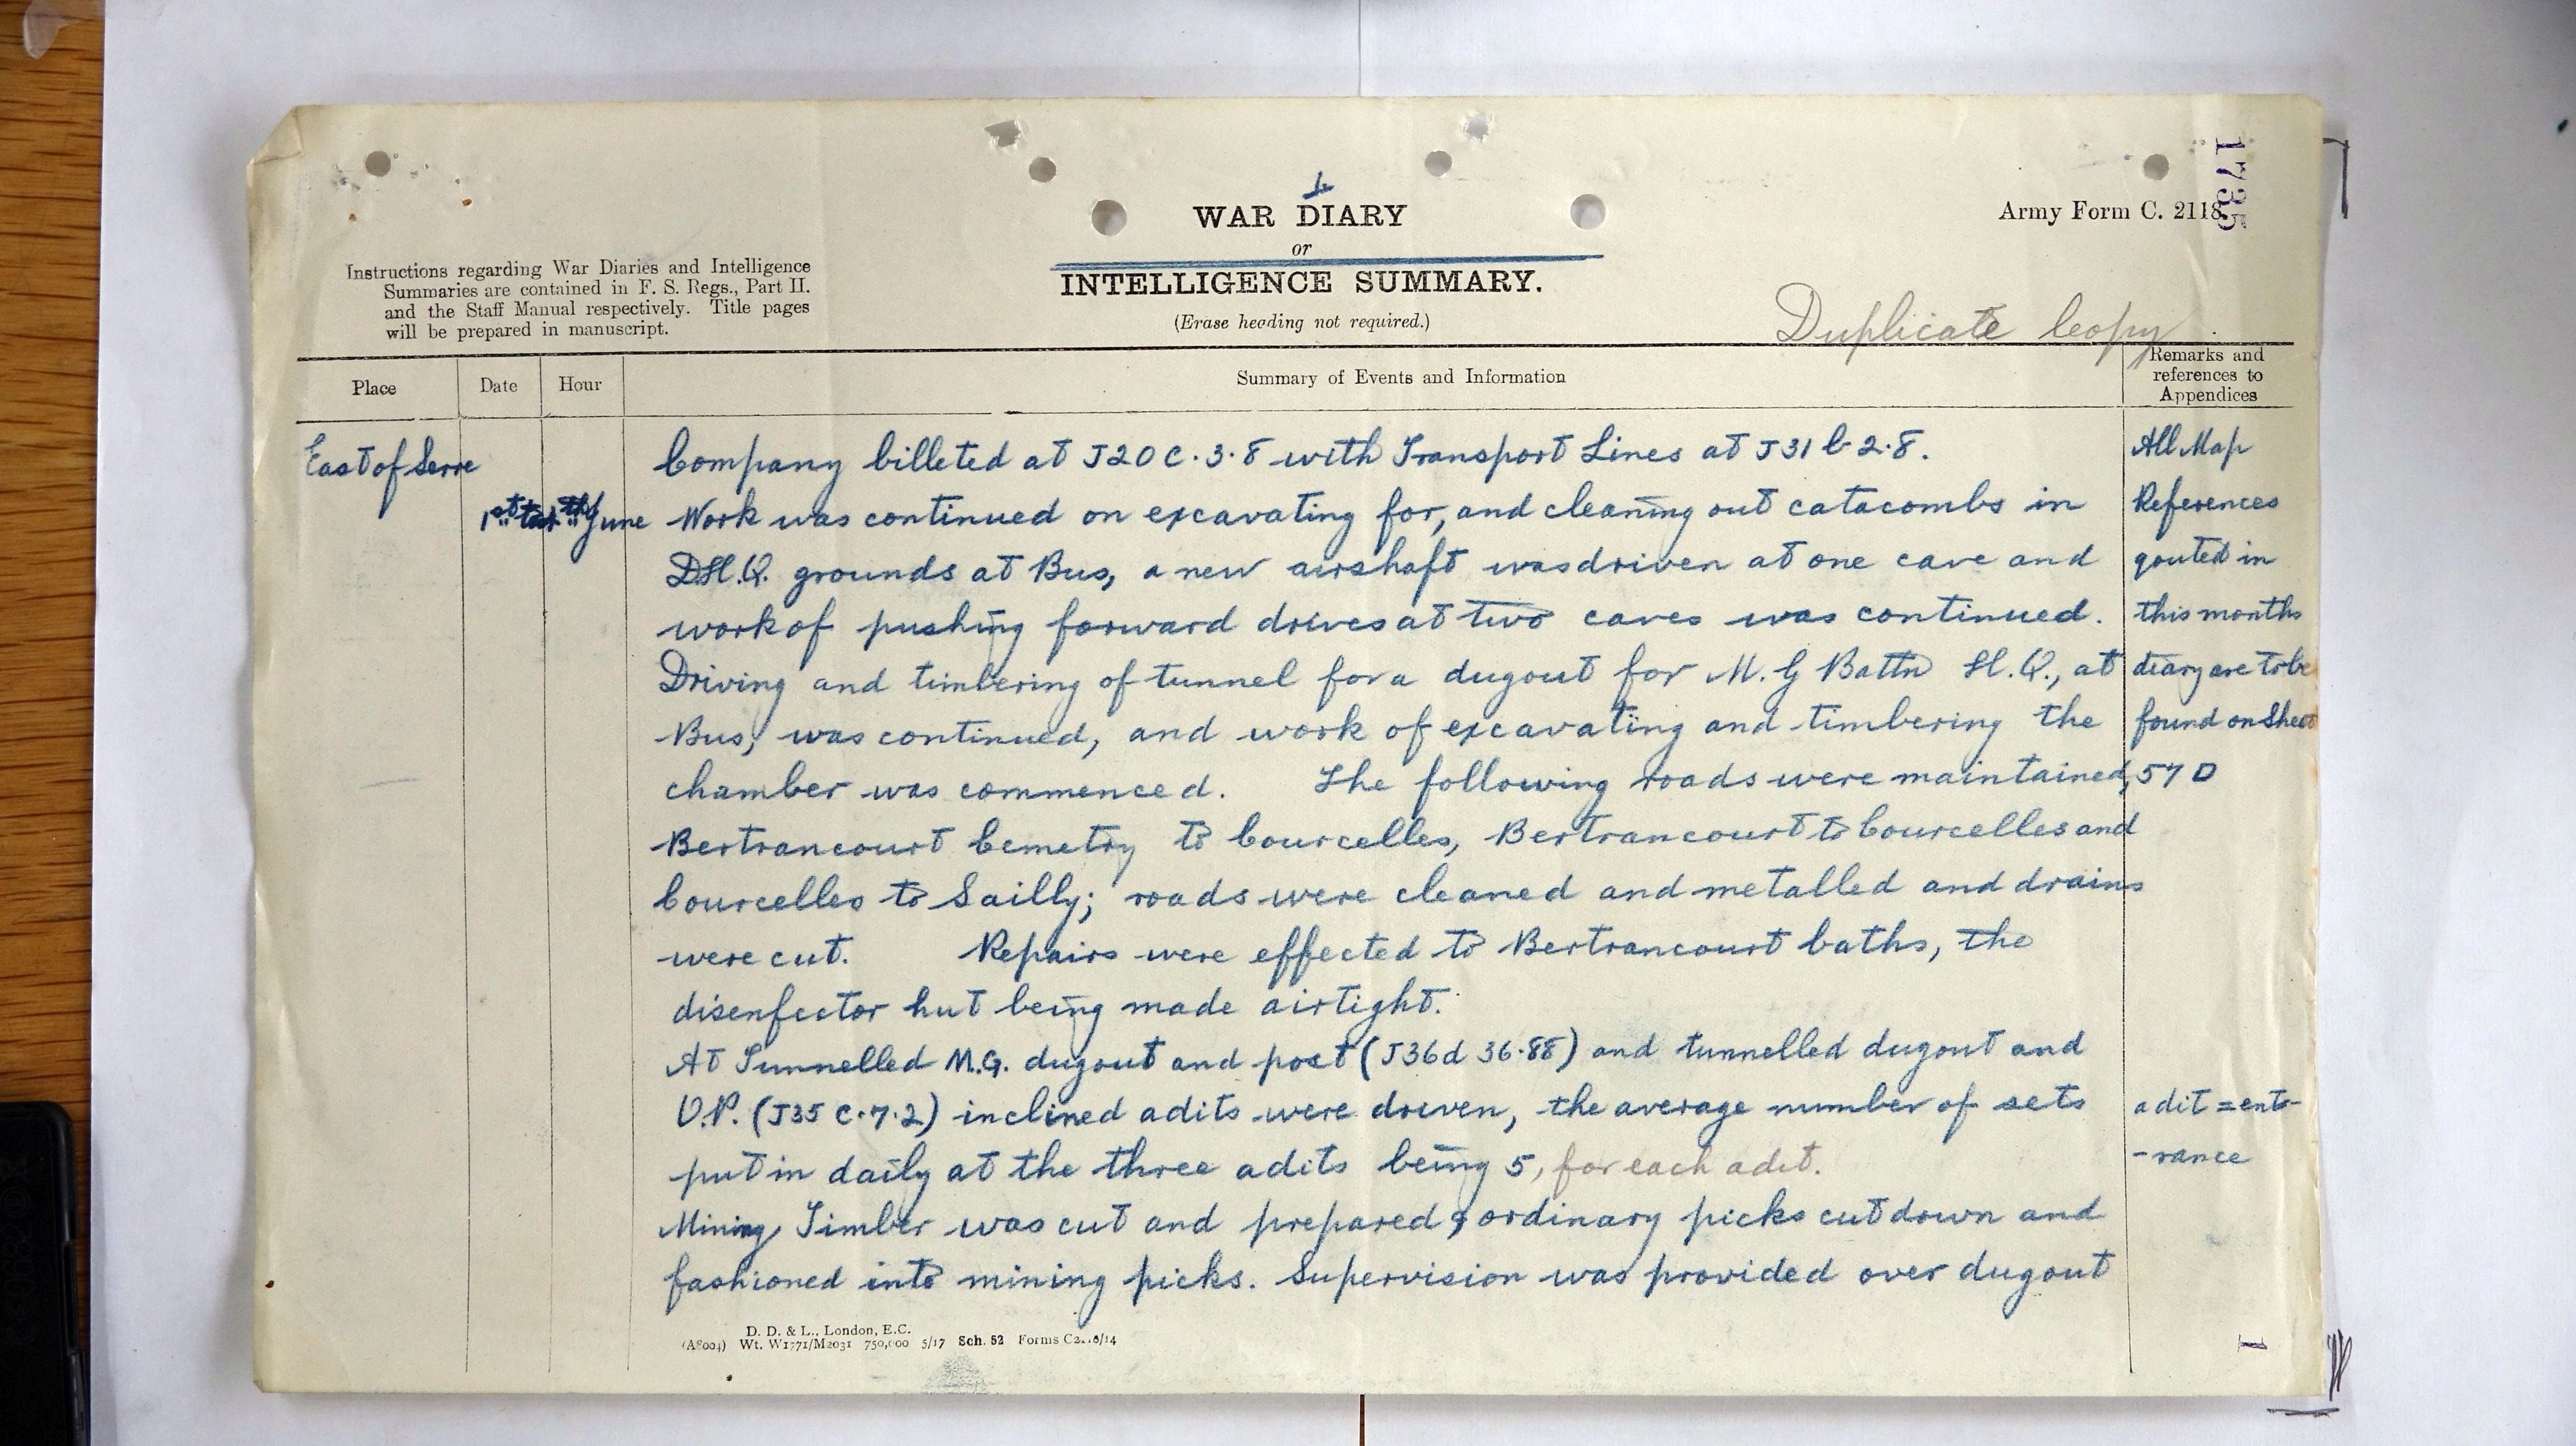 1735
WAR DIARY
or
INTELLIGENCE SUMMARY.
(Erase heading not required.)
Army Form C. 2118.
Instructions regarding War Diaries and Intelligence
Summaries are contained in F. S. Regs., Part II.
and the Staff Manual respectively. Title pages
will be prepared in manuscript.
Duplicate Copy
Place
Date
Hour
Summary of Events and Information
Remarks and
references to
Appendices
East of Serre
1st to June
Company billeted at J20 C.3.8 with Transport Lines at J31 b 2.8.
Work was continued on excavating for, and cleaning out catacombs in
D.H.Q. grounds at Bus, a new airshaft was driven at one cave and
work of pushing forward drives at two caves was continued.
Driving and timbering of tunnel for a dugout for M.G Battn H.Q., at
Bus, was continued, and work of excavating and timbering the
chamber was commenced. The following roads were maintained,
Bertrancourt Cemetry to Courcelles, Bertrancourt to Courcelles and
Courcelles to Sailly; roads were cleaned and metalled and drains
were cut. Repairs were effected to Bertrancourt baths, the
disenfector hut being made airtight.
At Tunnelled M.G. dugout and post (J36d 36.88) and tunnelled dugout and
O.P. (J35 C.7.2) inclined adits were driven, the average number of sets
put in daily at the three adits being 5, for each adit.
Mining Timber was cut and prepared, ordinary picks cut down and
fashioned into mining picks. Supervision was provided over dugout
All Map
References
qouted in
this months
diary are to be
found on Sheet
57 D
adit = ent-
-rance
D. D. & L., London, E.C.
(A8004) Wt. W1771/M2031 750,000 5/17 Sch. 52 Forms C2118/14
1